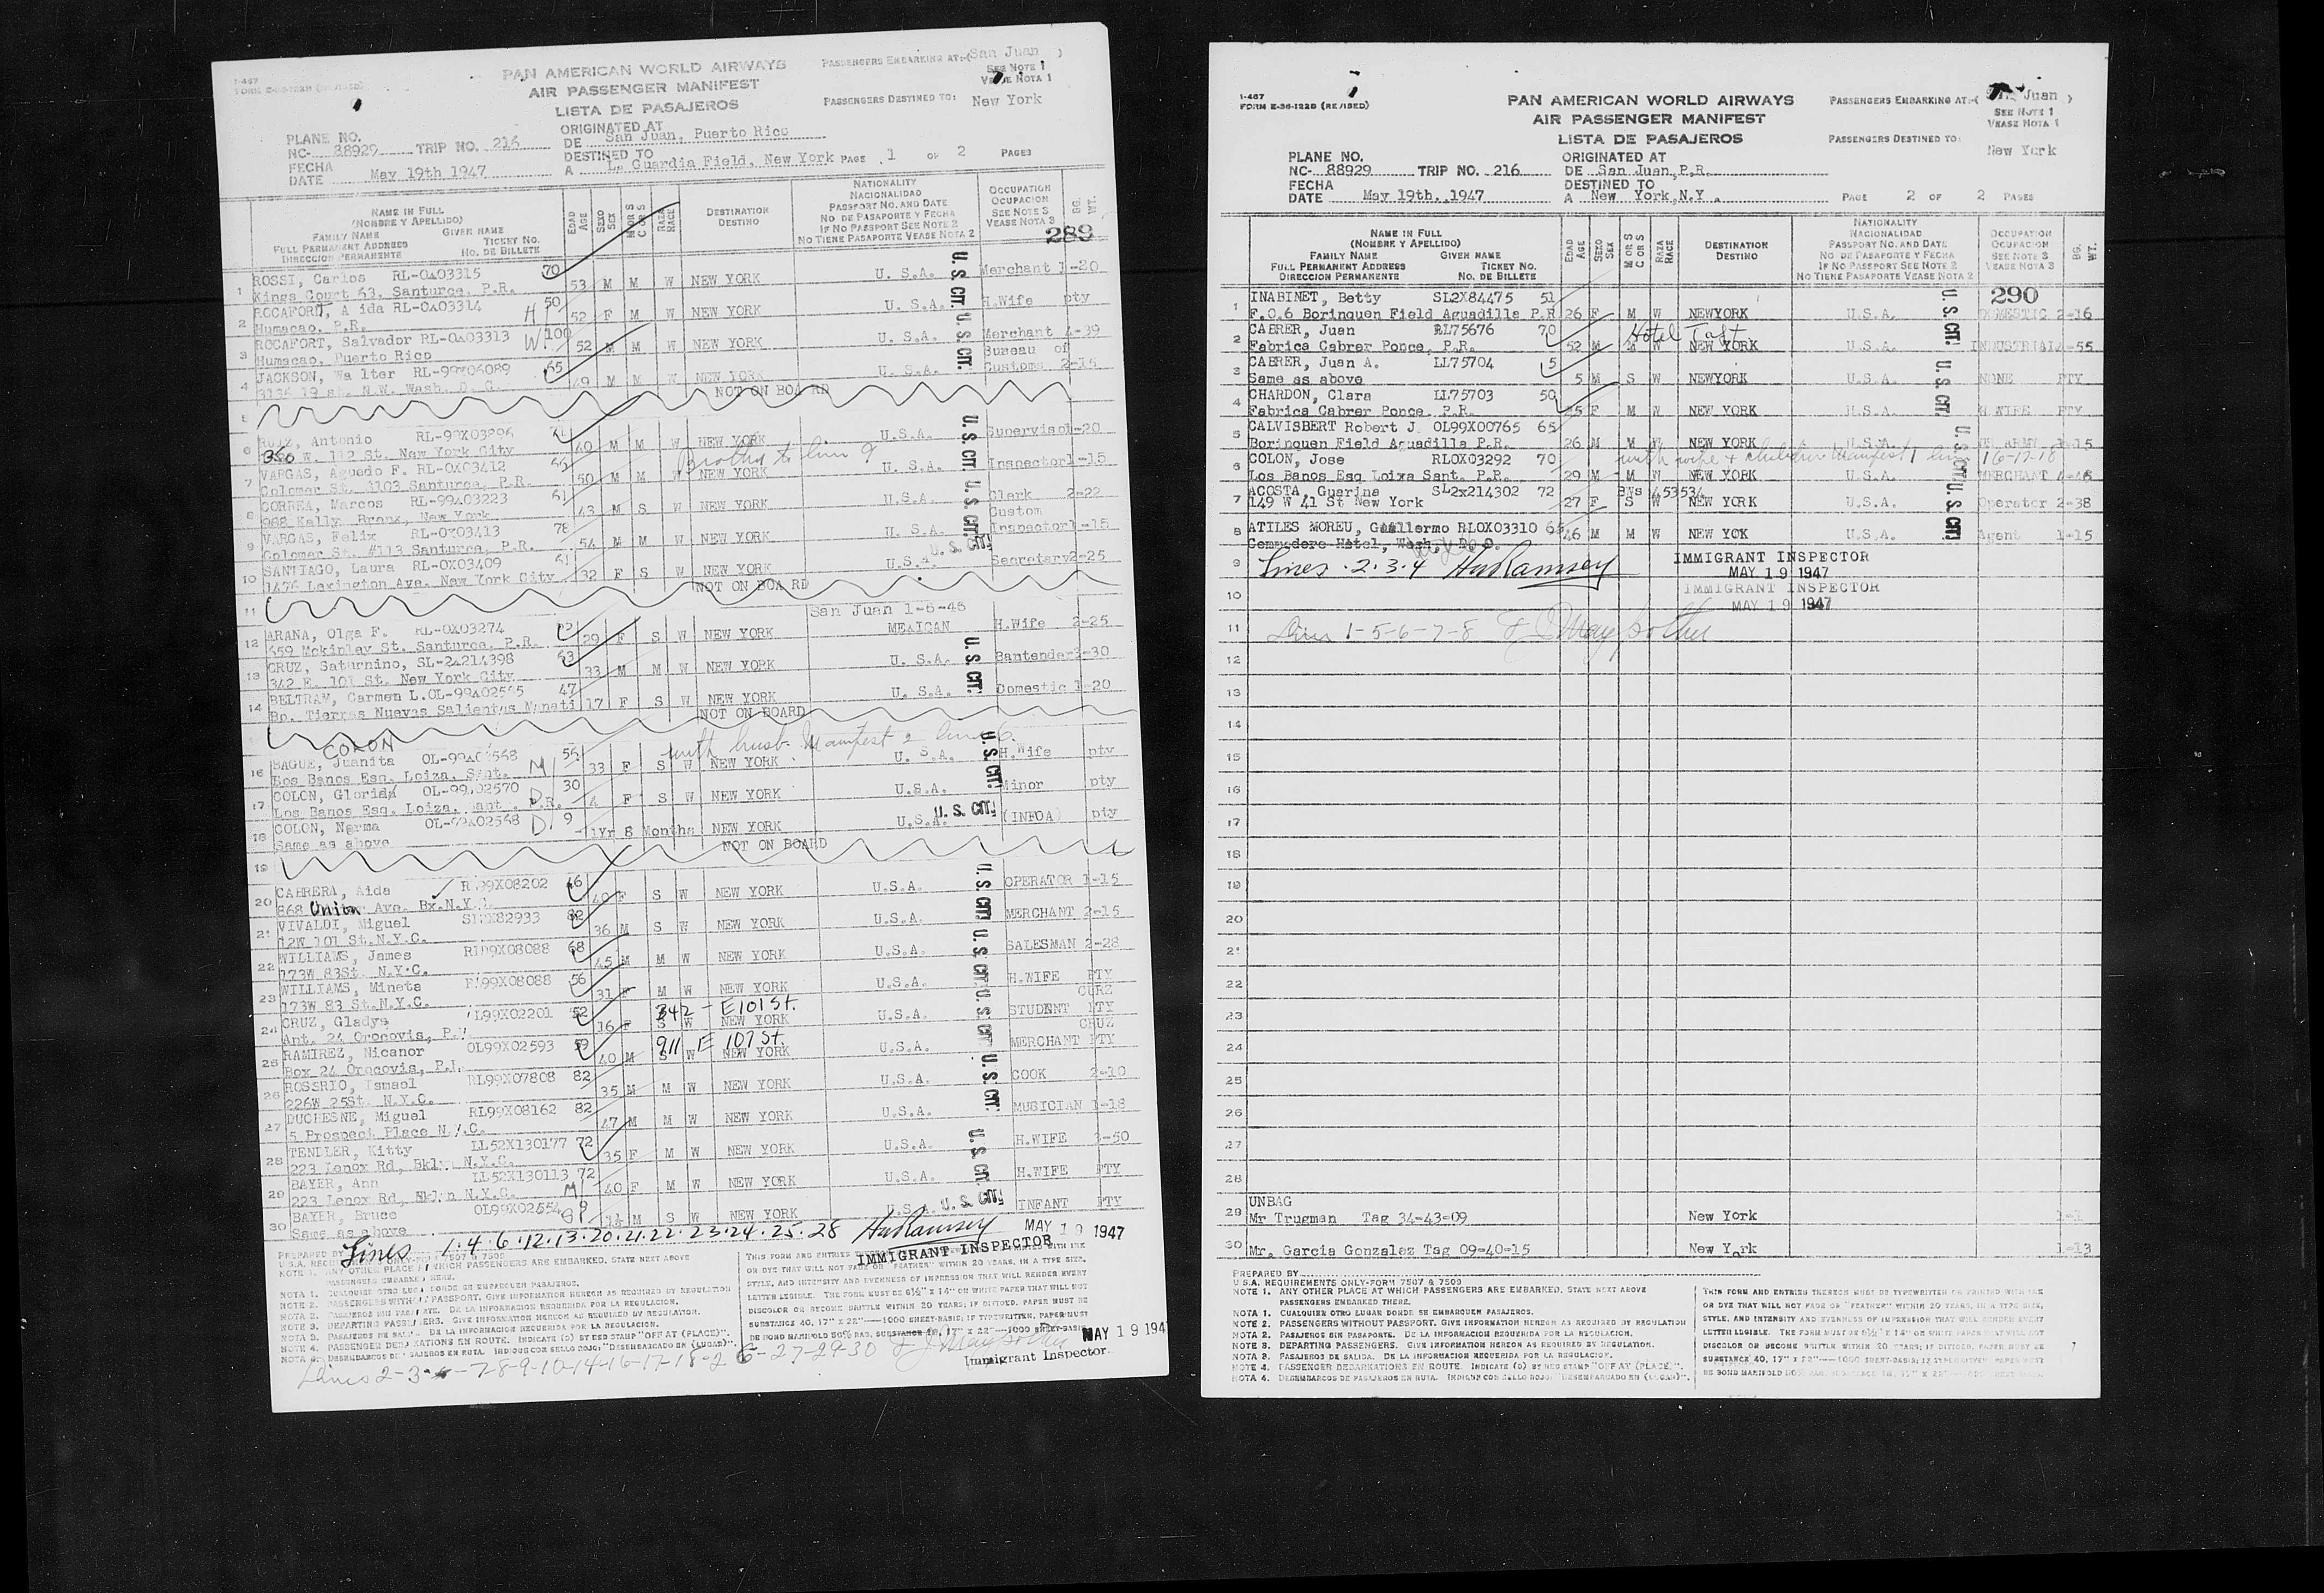 I-467
PAN AMERICAN WORLD AIRWAYS
AIR PASSENGER MANIFEST
LISTA DE PASAJEROS
PASSENGERS EMBARKING AT:-(San Juan )
SEE NOTE 1
VEASE NOTA 1
PASSENGERS DESTINED TO: New York
PLANE NO.
NC- 88929 TRIP NO. 216
ORIGINATED AT
DE San Juan, Puerto Rico
DESTINED TO
A La Guardia Field, New York PAGE 1 OF 2 PAGES
FECHA
DATE May 19th 1947
NAME IN FULL
(NOMBRE Y APELLIDO)
FAMILY NAME GIVEN NAME
FULL PERMANENT ADDRESS TICKET NO.
DIRECCION PERMANENTE NO. DE BILLETE
EDAD AGE
SEXO SEX
M OR S C OR S
RAZA RACE
DESTINATION
DESTINO
NATIONALITY
NACIONALIDAD
PASSPORT NO. AND DATE
NO DE PASAPORTE Y FECHA
IF NO PASSPORT SEE NOTE 2
NO TIENE PASAPORTE VEASE NOTA 2
OCCUPATION
OCUPACION
SEE NOTE 3
VEASE NOTA 3
BG. WT.
289
1 ROSSI, Carlos RL-0A03315 70 53 M M W NEW YORK U.S.A. Merchant 1-20
Kings Court 63. Santurce, P.R.
2 ROCAFORT, A ida RL-0A03314 50 52 F M W NEW YORK U.S.A. H.Wife pty
Humacao, P.R.
3 ROCAFORT, Salvador RL-0A03313 W. 100 52 M M W NEW YORK U.S.A. Merchant 4-39
Humacao, Puerto Rico
4 JACKSON, Wa lter RL-99X06089 65 49 M M W NEW YORK U.S.A. Bureau of Customs 2-15
3136 19 st. N.W. Wash. D. C.
NOT ON BOA RD
5
6 RUIZ, Antonio RL-99X03296 40 M M W NEW YORK U.S.A. Supervisor 1-20
350 W. 112 St. New York City
Brother to line 9
7 VARGAS, Aguedo F. RL-0X03412 50 M M W NEW YORK U.S.A. Inspector 1-15
Colomer St. 3103 Santurce, P.R.
8 CORREA, Marcos RL-99A03223 61 43 M S W NEW YORK U.S.A. Clerk 2-22
968 Kelly Bronx, New York
9 VARGAS, Felix RL-0X03413 78 54 M M W NEW YORK U.S.A. Custom Inspector 1-15
Colomer St. #113 Santurce, P.R.
10 SANTIAGO, Laura RL-0X03409 61 32 F S W NEW YORK U.S.A. Secretary 2-25
1476 Lexington Ave. New York City
NOT ON BOA RD
11
San Juan 1-6-46
12 ARANA, Olga F. RL-0X03274 29 F S W NEW YORK MEXICAN H.Wife 2-25
659 Mckinley St. Santurce, P.R.
13 CRUZ, Saturnino, SL-2A214398 63 33 M M W NEW YORK U.S.A. Bantender 3-30
342 E. 101 St. New York City
14 BELTRAN, Carmen L. OL-99A02565 47 17 F S W NEW YORK U.S.A. Domestic 1-20
Bo. Tierras Nuevas Salientas Manati
NOT ON BOARD
COLON
with husb. Manifest 2 line 6.
16 BAGUE, Juanita OL-99A02568 56 33 F S W NEW YORK U.S.A. H.Wife pty
Los Banos Esq. Loiza, Sant.
17 COLON, Gloria OL-99A02570 30 4 F S W NEW YORK U.S.A. Minor pty
Los Banos Esq. Loiza, Sant. P.R.
18 COLON, Norma OL-99A02568 9 1Yr 8 Months NEW YORK U.S.A. (INFOA) pty
Same as above
NOT ON BOARD
19
20 CABRERA, Aida RL99X08202 46 40 F S W NEW YORK U.S.A. OPERATOR 1-15
868 Union Ave. Bx.N.Y.
21 VIVALDI, Miguel 82 36 M S W NEW YORK U.S.A. MERCHANT 2-15
12W 101 St.N.Y.C.
22 WILLIAMS, James RL99X08088 68 45 M M W NEW YORK U.S.A. SALESMAN 2-28
173W 83St. N.Y.C.
23 WILLIAMS, Mineta RL99X08088 56 31 F M W NEW YORK U.S.A. H.WIFE PTY
173W 83 St.N.Y.C.
342 - E 101 St.
CURZ
24 CRUZ, Gladys L99X02201 52 16 F S W NEW YORK U.S.A. STUDENT PTY
Ant. 24 Orocovis, P.R.
911 E 107 St.
CRUZ
25 RAMIREZ, Nicanor OL99X02593 59 40 M S W NEW YORK U.S.A. MERCHANT PTY
Box 24 Orocovis, P.R.
26 ROSSRIO, Ismael RL99X07808 82 35 M M W NEW YORK U.S.A. COOK 2-10
226W 25St. N.Y.C.
27 DUCHESNE, Miguel RL99X08162 82 47 M M W NEW YORK U.S.A. MUSICIAN 1-18
5 Prospect Place N.Y.C.
28 TENDLER, Kitty LL52X130177 72 35 F M W NEW YORK U.S.A. H.WIFE 3-50
223 Lenox Rd, Bklyn N.Y.C.
29 BAYER, Ann LL52X130113 72 40 F M W NEW YORK U.S.A. H.WIFE PTY
223 Lenox Rd, Bklyn N.Y.C.
30 BAYER, Bruce OL99X02554 M S W NEW YORK U.S.A. INFANT PTY
Same as above
U.S. CIT.
Lines 1·4·6·12·13·20·21·22·23·24·25·28 HWRamsey MAY 19 1947
IMMIGRANT INSPECTOR
PREPARED BY
U.S.A. REQUIREMENTS ONLY-FORM 7507 & 7509
NOTE 1. ANY OTHER PLACE AT WHICH PASSENGERS ARE EMBARKED, STATE NEXT ABOVE
PASSENGERS EMBARKED HERE.
NOTA 1. CUALQUIER OTRO LUGAR DONDE SE EMBARQUEN PASAJEROS.
NOTE 2. PASSENGERS WITHOUT PASSPORT. GIVE INFORMATION HEREON AS REQUIRED BY REGULATION
NOTA 2. PASAJEROS SIN PASAPORTE. DE LA INFORMACION REQUERIDA POR LA REGULACION.
NOTE 3. DEPARTING PASSENGERS. GIVE INFORMATION HEREON AS REQUIRED BY REGULATION.
NOTA 3. PASAJEROS DE SALIDA. DE LA INFORMACION REQUERIDA POR LA REGULACION.
NOTE 4. PASSENGER DEBARKATIONS EN ROUTE. INDICATE (D) BY RED STAMP "OFF AT (PLACE)".
NOTA 4. DESEMBARCOS DE PASAJEROS EN RUTA. INDIQUE CON SELLO ROJO: "DESEMBARCADO EN (LUGAR)".
THIS FORM AND ENTRIES THEREON MUST BE TYPEWRITTEN OR PRINTED WITH INK
OR DYE THAT WILL NOT FADE OR "FEATHER" WITHIN 20 YEARS, IN A TYPE SIZE,
STYLE, AND INTENSITY AND EVENNESS OF IMPRESSION THAT WILL RENDER EVERY
LETTER LEGIBLE. THE FORM MUST BE 8½" X 14" ON WHITE PAPER THAT WILL NOT
DISCOLOR OR BECOME BRITTLE WITHIN 20 YEARS; IF DITTOED, PAPER MUST BE
SUBSTANCE 40, 17" X 22"—1000 SHEET-BASIS; IF TYPEWRITTEN, PAPER MUST
BE BOND MANIFOLD 50% RAG, SUBSTANCE 16, 17" X 22"—1000 SHEET-BASIS
MAY 19 1947
Lines 2-3-7-8-9-10-14-16-17-18-26-27-29-30
Immigrant Inspector.
I-467
FORM E-36-122B (REVISED)
PAN AMERICAN WORLD AIRWAYS
AIR PASSENGER MANIFEST
LISTA DE PASAJEROS
PASSENGERS EMBARKING AT:-( San Juan )
SEE NOTE 1
VEASE NOTA 1
PASSENGERS DESTINED TO:
New York
PLANE NO.
NC- 88929 TRIP NO. 216
ORIGINATED AT
DE San Juan,P.R.
FECHA
DATE May 19th. 1947
DESTINED TO
A New York,N.Y. PAGE 2 OF 2 PAGES
NAME IN FULL
(NOMBRE Y APELLIDO)
FAMILY NAME GIVEN NAME
FULL PERMANENT ADDRESS TICKET NO.
DIRECCION PERMANENTE NO. DE BILLETE
EDAD AGE
SEXO SEX
M OR S C OR S
RAZA RACE
DESTINATION
DESTINO
NATIONALITY
NACIONALIDAD
PASSPORT NO. AND DATE
NO DE PASAPORTE Y FECHA
IF NO PASSPORT SEE NOTE 2
NO TIENE PASAPORTE VEASE NOTA 2
OCCUPATION
OCUPACION
SEE NOTE 3
VEASE NOTA 3
BG. WT.
290
1 INABINET, Betty SL2X84475 51
F.O.6 Borinquen Field Aguadilla P.R 26 F M W NEWYORK U.S.A. DOMESTIC 2-16
2 CABRER, Juan RL75676 70 Hotel Taft
Fabrica Cabrer Ponce, P.R. 52 M M W NEW YORK U.S.A. INDUSTRIAL 4-55
3 CABRER, Juan A. LL75704 5
Same as above 5 M S W NEWYORK U.S.A. NONE PTY
4 CHARDON, Clara LL75703 50
Fabrica Cabrer Ponce. P.R. 45 F M W NEW YORK U.S.A. H WIFE PTY
5 CALVISBERT Robert J. OL99X00765 65
Borinquen Field Aguadilla P.R. 26 M M W NEW YORK U.S.A. US ARMY 1-15
6 COLON, Jose RLOX03292 70 with wife & children Manifest 1 line 16-17-18
Los Banos Esq Loiza Sant. P.R. 29 M M W NEW YORK U.S.A. MERCHANT 4-46
7 ACOSTA, Guarina SL2x214302 72
149 W 41 St New York 27 F S W NEW YORK U.S.A. Operator 2-38
8 ATILES MOREU, Guillermo RLOX03310 65
Commodore Hotel, Wash, D.C. 46 M M W NEW YOK U.S.A. Agent 1-15
U.S. CIT.
9 Lines ·2·3·4 HWRamsey IMMIGRANT INSPECTOR
MAY 19 1947
10 IMMIGRANT INSPECTOR
MAY 19 1947
11 Lines 1-5-6-7-8
12
13
14
15
16
17
18
19
20
21
22
23
24
25
26
27
28
29 UNBAG
Mr Trugman Tag 34-43-09 New York 1-1
30 Mr. Garcia Gonzalez Tag 09-40-15 New York 1-13
PREPARED BY
U.S.A. REQUIREMENTS ONLY-FORM 7507 & 7509
NOTE 1. ANY OTHER PLACE AT WHICH PASSENGERS ARE EMBARKED, STATE NEXT ABOVE
PASSENGERS EMBARKED THERE.
NOTA 1. CUALQUIER OTRO LUGAR DONDE SE EMBARQUEN PASAJEROS.
NOTE 2. PASSENGERS WITHOUT PASSPORT. GIVE INFORMATION HEREON AS REQUIRED BY REGULATION
NOTA 2. PASAJEROS SIN PASAPORTE. DE LA INFORMACION REQUERIDA POR LA REGULACION.
NOTE 3. DEPARTING PASSENGERS. GIVE INFORMATION HEREON AS REQUIRED BY REGULATION.
NOTA 3. PASAJEROS DE SALIDA. DE LA INFORMACION REQUERIDA POR LA REGULACION.
NOTE 4. PASSENGER DEBARKATIONS EN ROUTE. INDICATE (D) BY RED STAMP "OFF AT (PLACE)".
NOTA 4. DESEMBARCOS DE PASAJEROS EN RUTA. INDIQUE CON SELLO ROJO: "DESEMBARCADO EN (LUGAR)".
THIS FORM AND ENTRIES THEREON MUST BE TYPEWRITTEN OR PRINTED WITH INK
OR DYE THAT WILL NOT FADE OF "FEATHER" WITHIN 20 YEARS, IN A TYPE SIZE,
STYLE, AND INTENSITY AND EVENNESS OF IMPRESSION THAT WILL RENDER EVERY
LETTER LEGIBLE. THE FORM MUST BE 8½" X 14" ON WHITE PAPER THAT WILL NOT
DISCOLOR OR BECOME BRITTLE WITHIN 20 YEARS; IF DITTOED, PAPER MUST BE
SUBSTANCE 40, 17" X 22"—1000 SHEET-BASIS; IF TYPEWRITTEN, PAPER MUST